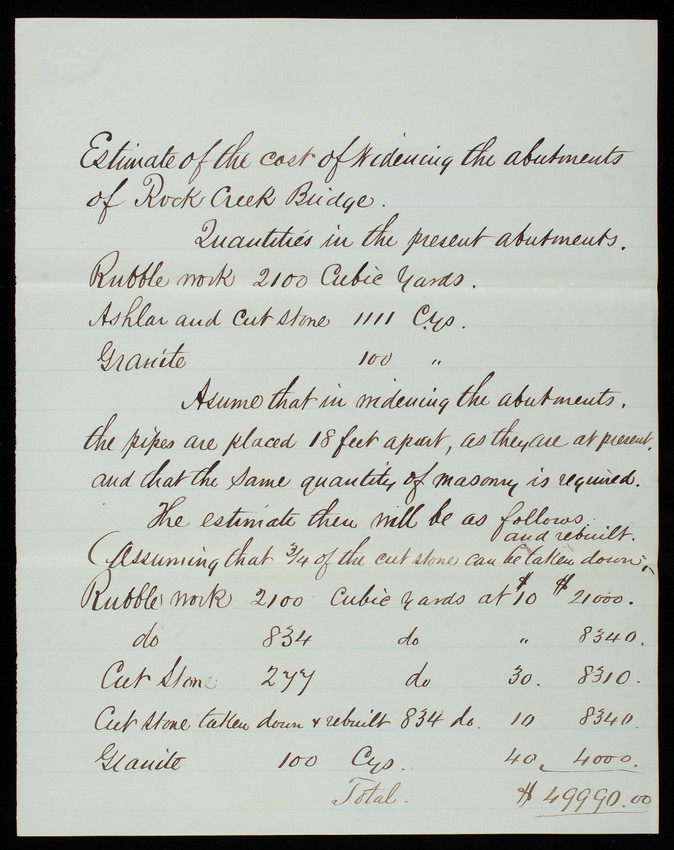 Estimate of the cost of Widening the abutments
of Rock Creek Bridge.
Quantities in the present abutments.
Rubble work 2100 Cubic Yards.
Ashlar and Cut Stone 1111 C.ys.
Granite 100 "
Asume that in widening the abutments.
the pipes are placed 18 feet apart, as they are at present.
and that the same quantity of masonry is required.
The estimate then will be as follows.
and rebuilt.
(Assuming that 3/4 of the cut stone can be taken down,
Rubble work 2100 Cubic Yards at $10 $21000.
do 834 do " 8340.
Cut Stone 277 do 30. 8310.
Cut stone taken down & rebuilt 834 do. 10 8340.
Granite 100 Cys. 40. 4000.
Total. $49990.00